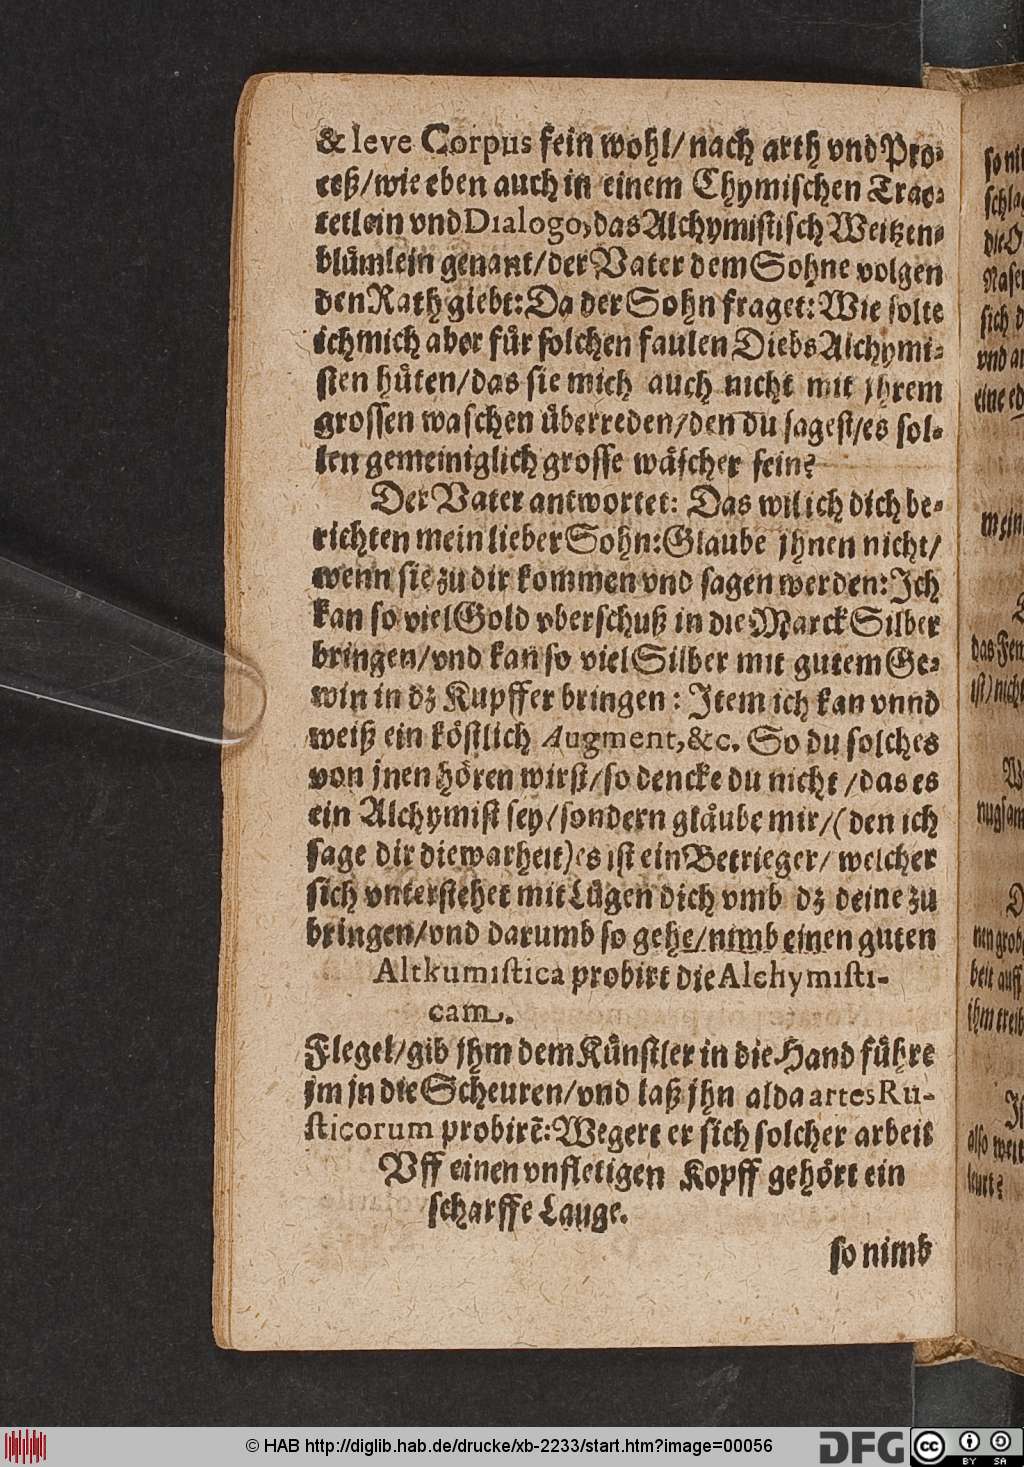 & leve Corpus fein wohl/nach arth vnd Pro-
ceß/wie eben auch in einem Chymischen Trac-
tetlein vnd Dialogo, das Alchymistisch Weitzen-
blůmlein genant/der Vater dem Sohne volgen
den Rath giebt: Da der Sohn fraget: Wie solte
ich mich aber fůr solchen faulen Diebs Alchymi-
sten hůten/das sie mich auch nicht mit jhrem
grossen waschen ůberreden/den du sagest/es sol-
len gemeiniglich grosse wäscher sein?
Der Vater antwortet: Das wil ich dich be-
richten mein lieber Sohn: Glaube jhnen nicht/
wenn sie zu dir kommen vnd sagen werden: Ich
kan so viel Gold vberschuß in die Marck Silber
bringen/vnd kan so viel Silber mit gutem Ge-
win in dz Kupffer bringen: Item ich kan vnnd
weiß ein köstlich Augment, &c. So du solches
von jnen hören wirst/so dencke du nicht/das es
ein Alchymist sey/sondern glåube mir/(den ich
sage dir die warheit) es ist ein Betrieger/welcher
sich vnterstehet mit Lůgen dich vmb dz deine zu
bringen/vnd darumb so gehe/nimb einen guten
Altkumistica probirt die Alchymisti-
cam.
Flegel/gib jhm dem Kůnstler in die Hand fůhre
jm jn die Scheuren/vnd laß jhn alda artes Ru-
sticorum probirē: Wegert er sich solcher arbeit
Vff einen vnfletigen Kopff gehört ein
scharffe Lauge.
so nimb
© HAB http://diglib.hab.de/drucke/xb-2233/start.htm?image=00056
DFG
cc BY SA